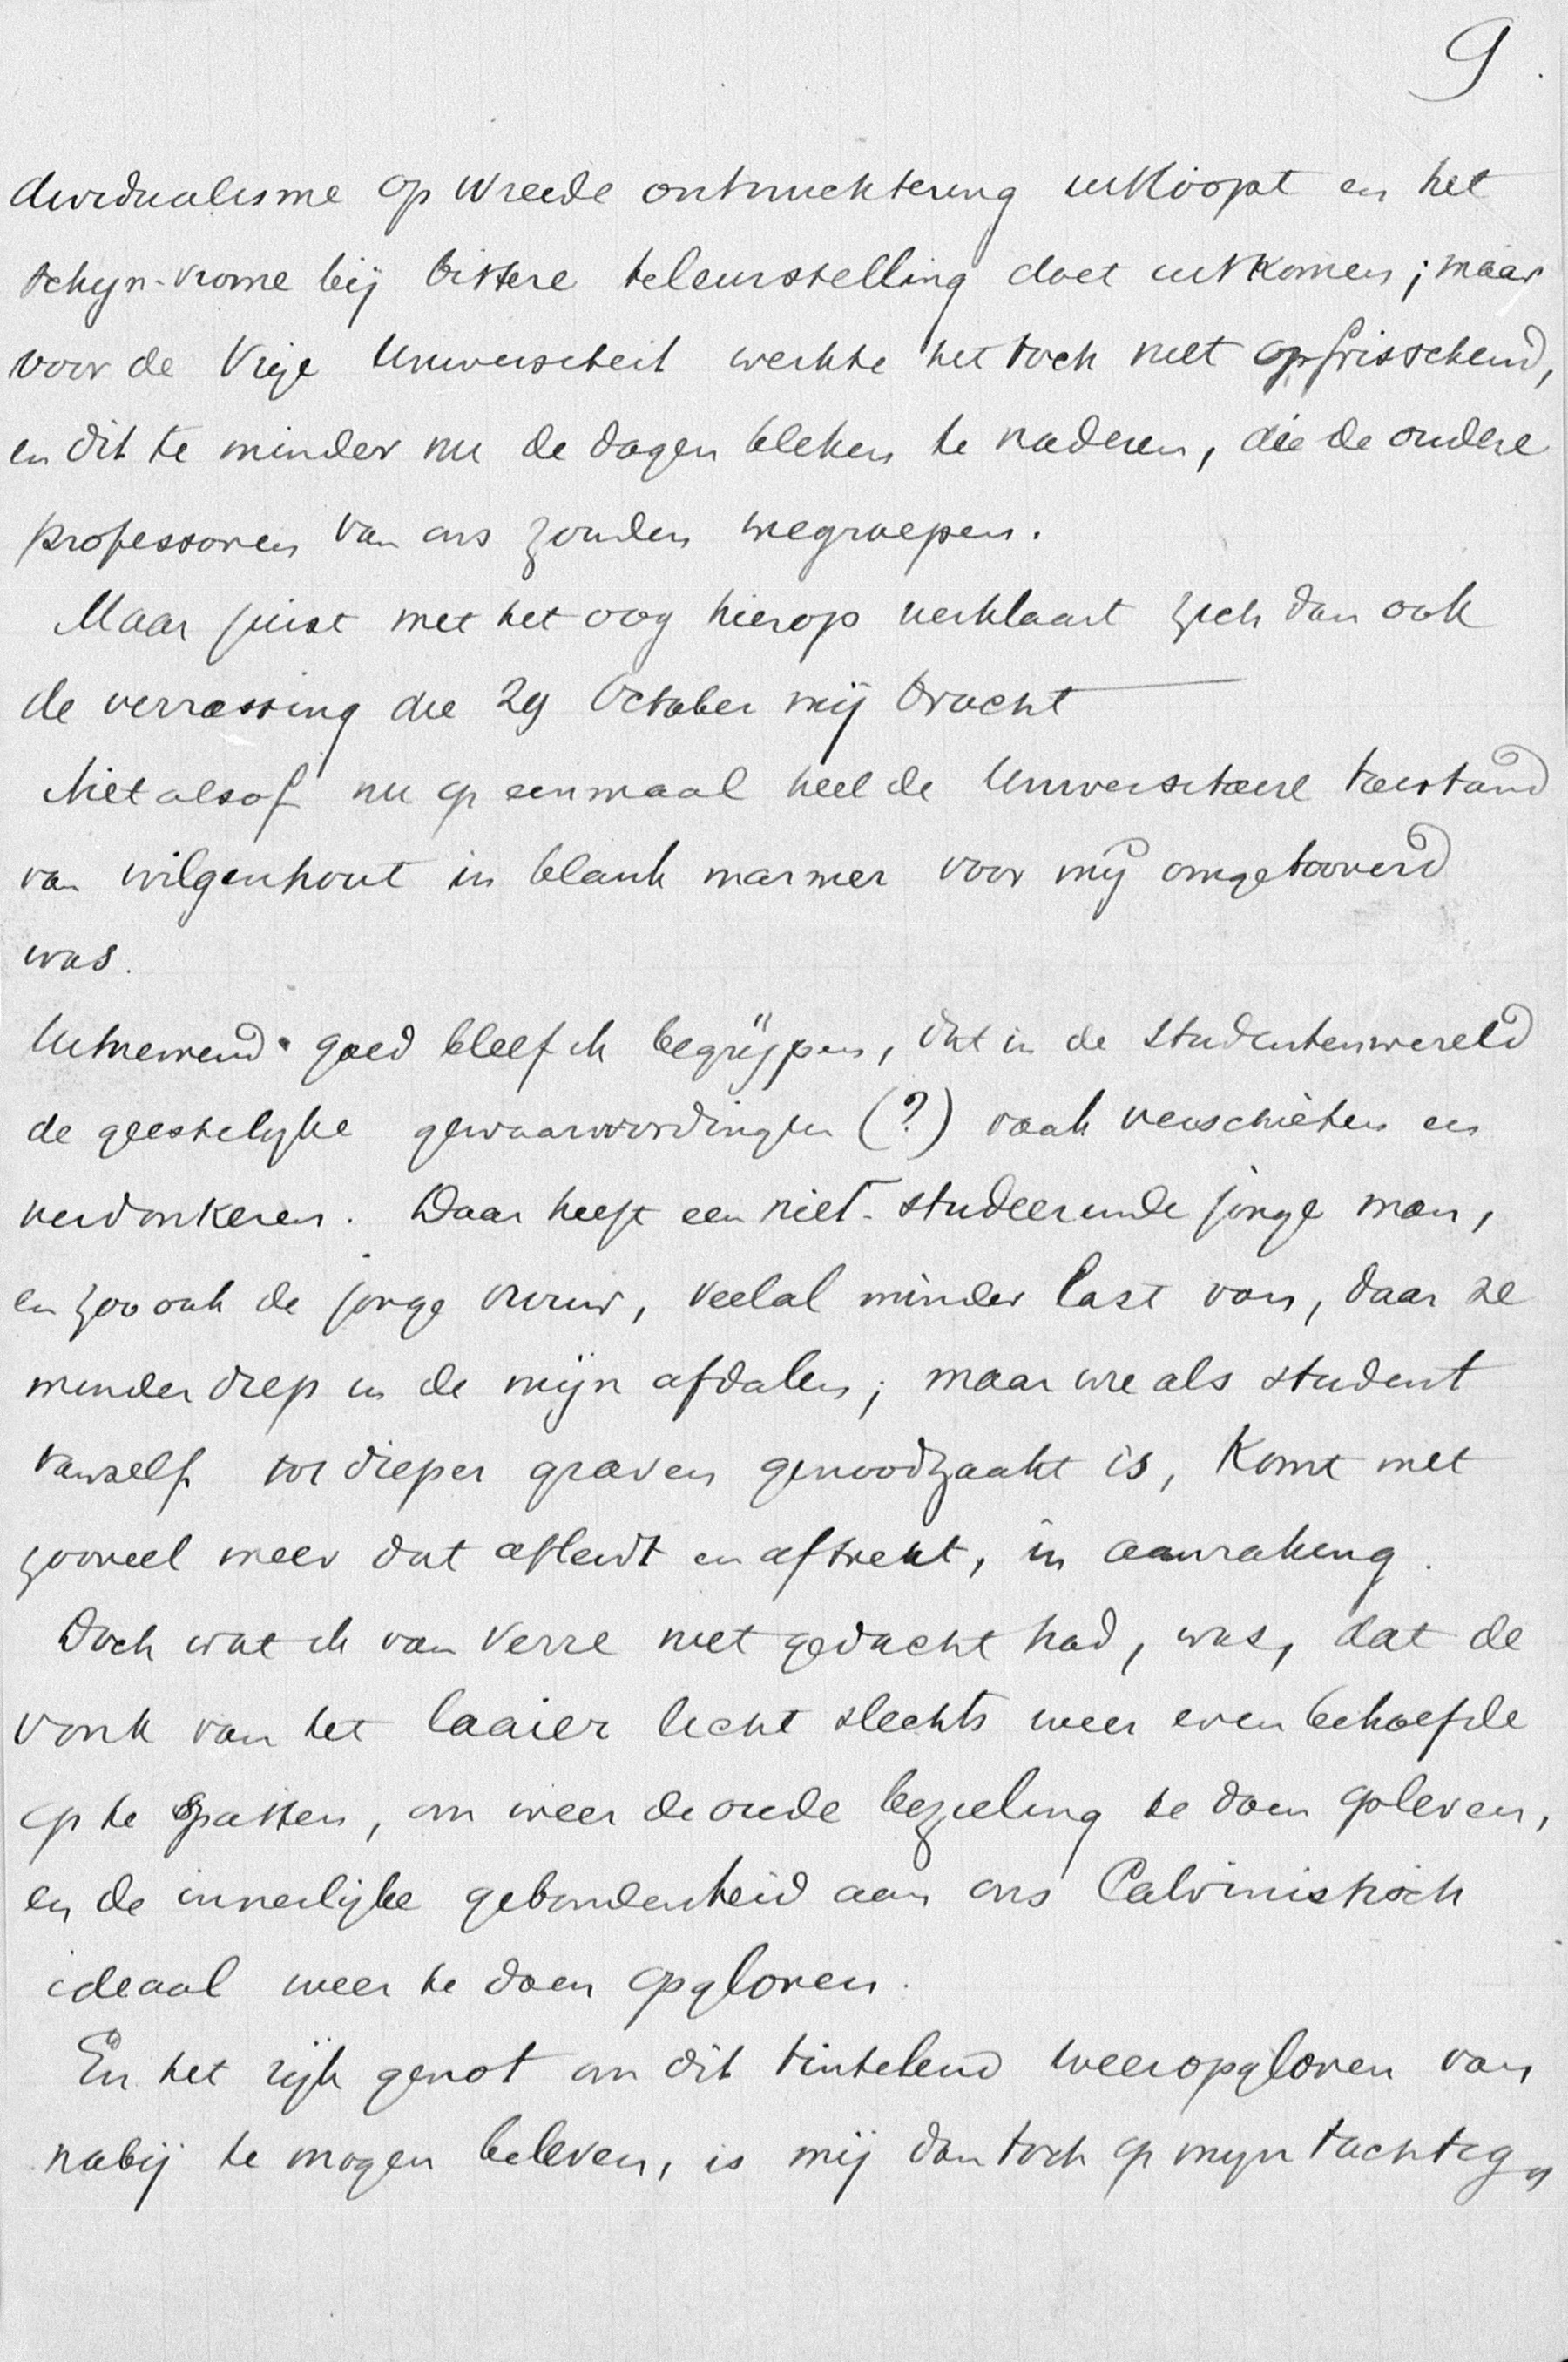 9.
dividualisme op wreede ontnuchtering uitloopt en het
schijn-vrome bij bittere teleurstelling doet uitkomen; maar
voor de Vrije Universiteit werkte het toch niet opfrisschend,
en dit te minder nu de dagen bleken te naderen, die de oudere
professoren van ons zouden wegroepen.
Maar juist met het oog hierop verklaart zich dan ook
de verrassing die 29 October mij bracht —
Niet alsof nu op eenmaal heel de Universitaire toestand
van wilgenhout in blank marmer voor mij omgetooverd
was.
Uitnemend goed bleef ik begrijpen, dat in de studentenwereld
de geestelijke gewaarwordingen (?) vaak verschieten en
verdonkeren. Daar heeft een niet-studeerende jonge man,
en zoo ook de jonge vrouw, veelal minder last van, daar ze
minder diep in de mijn afdalen; maar wie als student
vanzelf tot dieper graven genoodzaakt is, komt met
zooveel meer dat afleidt en aftrekt, in aanraking.
Doch wat ik van verre niet gedacht had, was, dat de
vonk van het laaier licht slechts weer even behoefde
op te spatten, om weer de oude bezieling te doen opleven,
en de innerlijke gebondenheid aan ons Calvinistisch
ideaal weer te doen opgloren.
En het rijk genot om dit tintelend weeropgloren van
nabij te mogen beleven, is mij dan toch op mijn tachtig,,